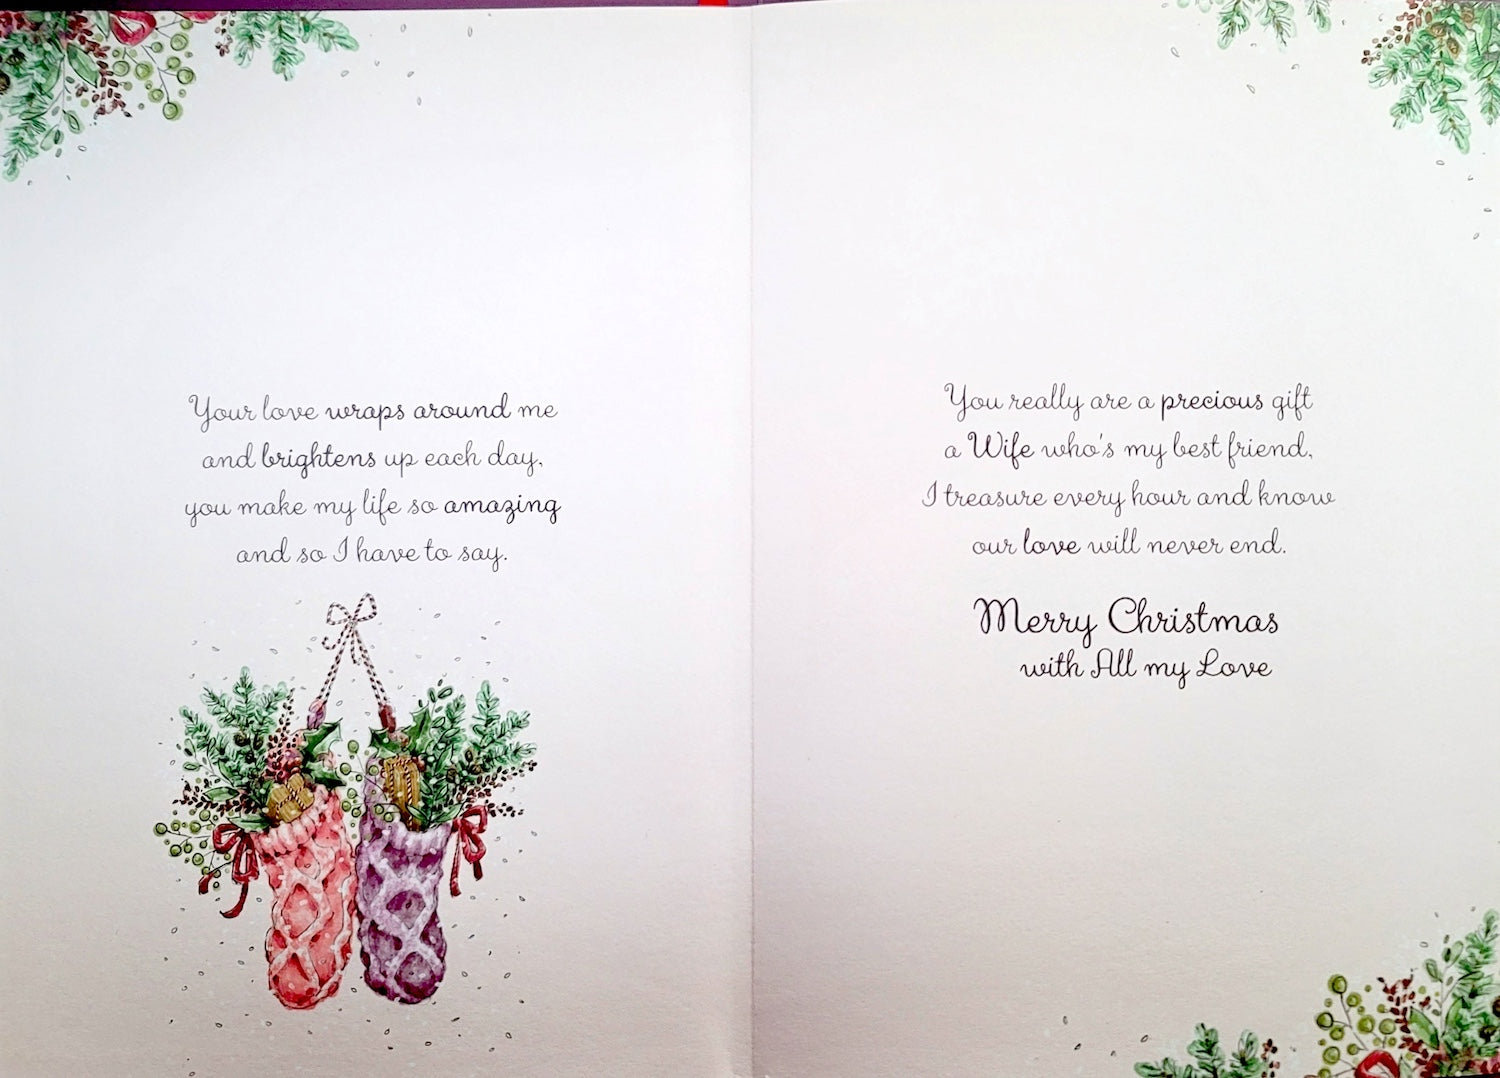 Your love wraps around me
and brightens up each day,
you make my life so amazing
and so I have to say.
You really are a precious gift
a Wife who's my best friend,
I treasure every hour and know
our love will never end.
Merry Christmas
with All my Love